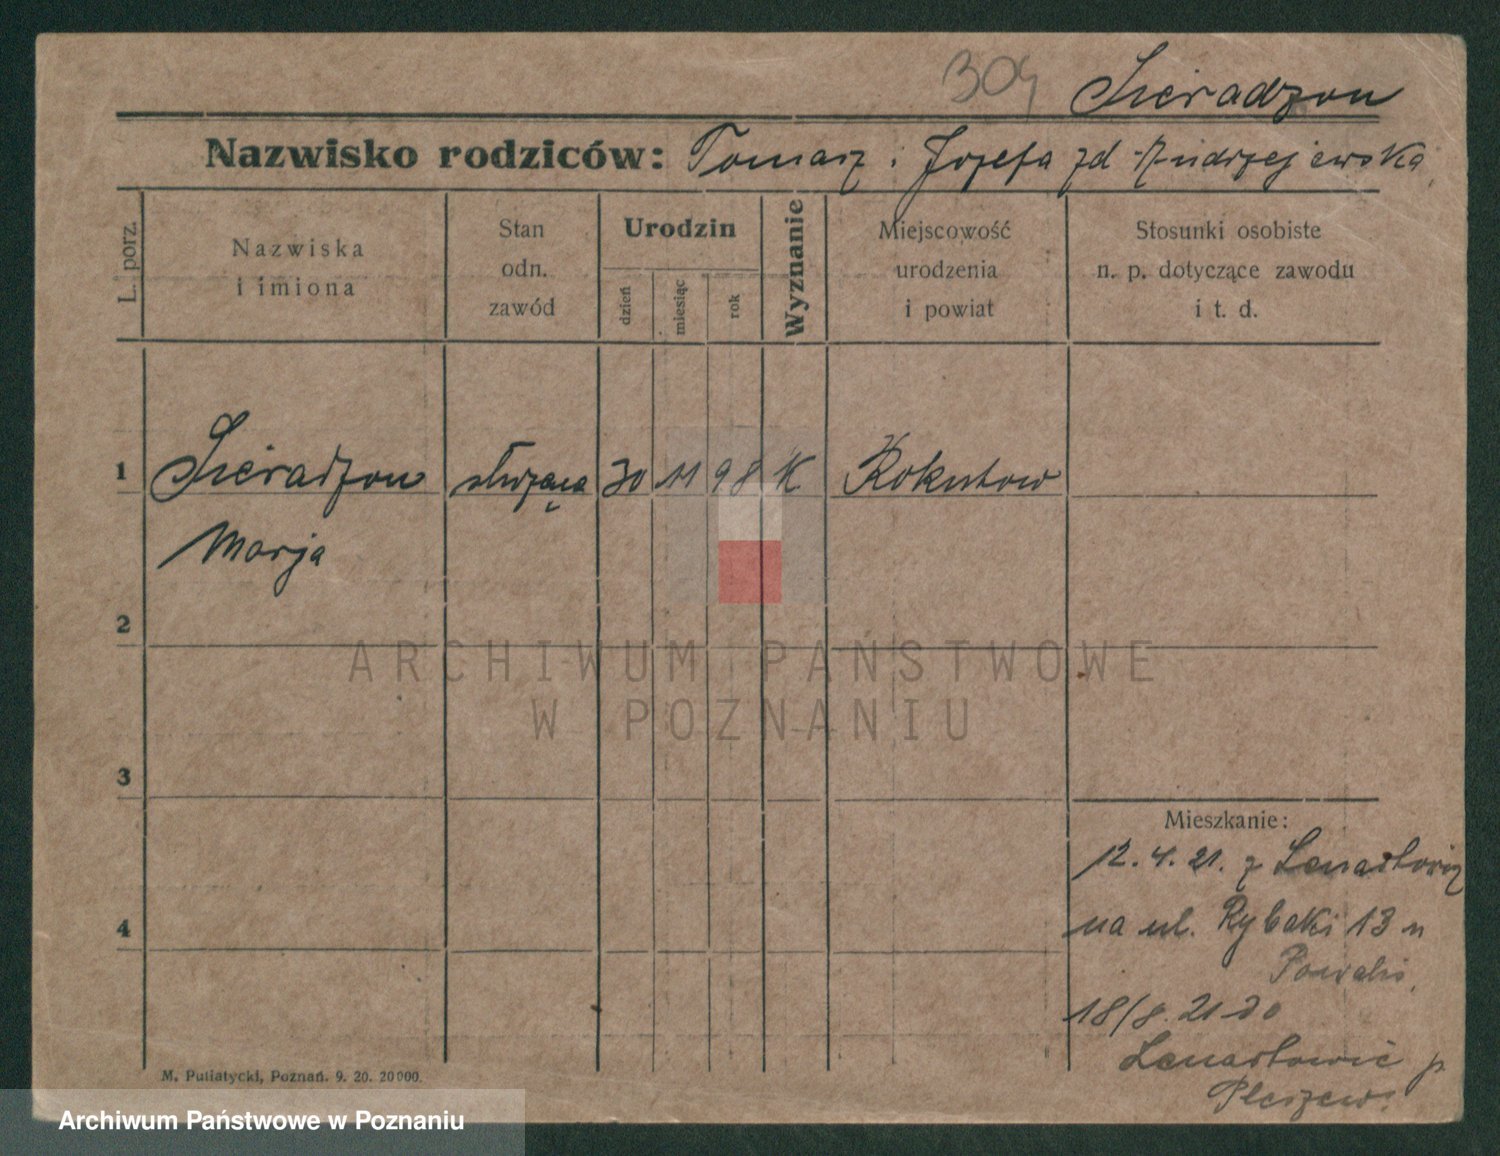 304 Sieradzon
Nazwisko rodziców: Tomasz i Jozefa zd Andrzejewska
L. porz.
Nazwiska
i imiona
Stan
odn.
zawód
Urodzin
dzień
miesiąc
rok
Wyznanie
Miejscowość
urodzenia
i powiat
Stosunki osobiste
n. p. dotyczące zawodu
i t. d.
1 Sieradzon służąca 30 11 98 K Rokutow
Marja
2
ARCHIWUM PAŃSTWOWE
W POZNANIU
3
Mieszkanie:
12.4.21. z Lenartowic
4
na ul. Rybaki 13 u
18/8.21 do
Lenartowic p.
Pleszew.
M. Putiatycki, Poznań. 9. 20. 20000.
Archiwum Państwowe w Poznaniu